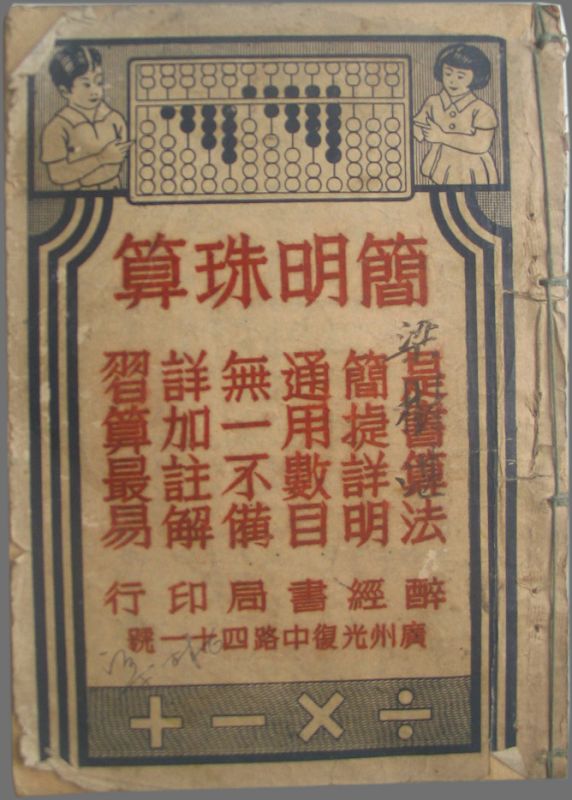 簡明珠算
是書算法
簡捷詳明
通用數目
無一不備
詳加註解
習算最易
梁
醉經書局印行
廣州光復中路四十一號
÷×−+